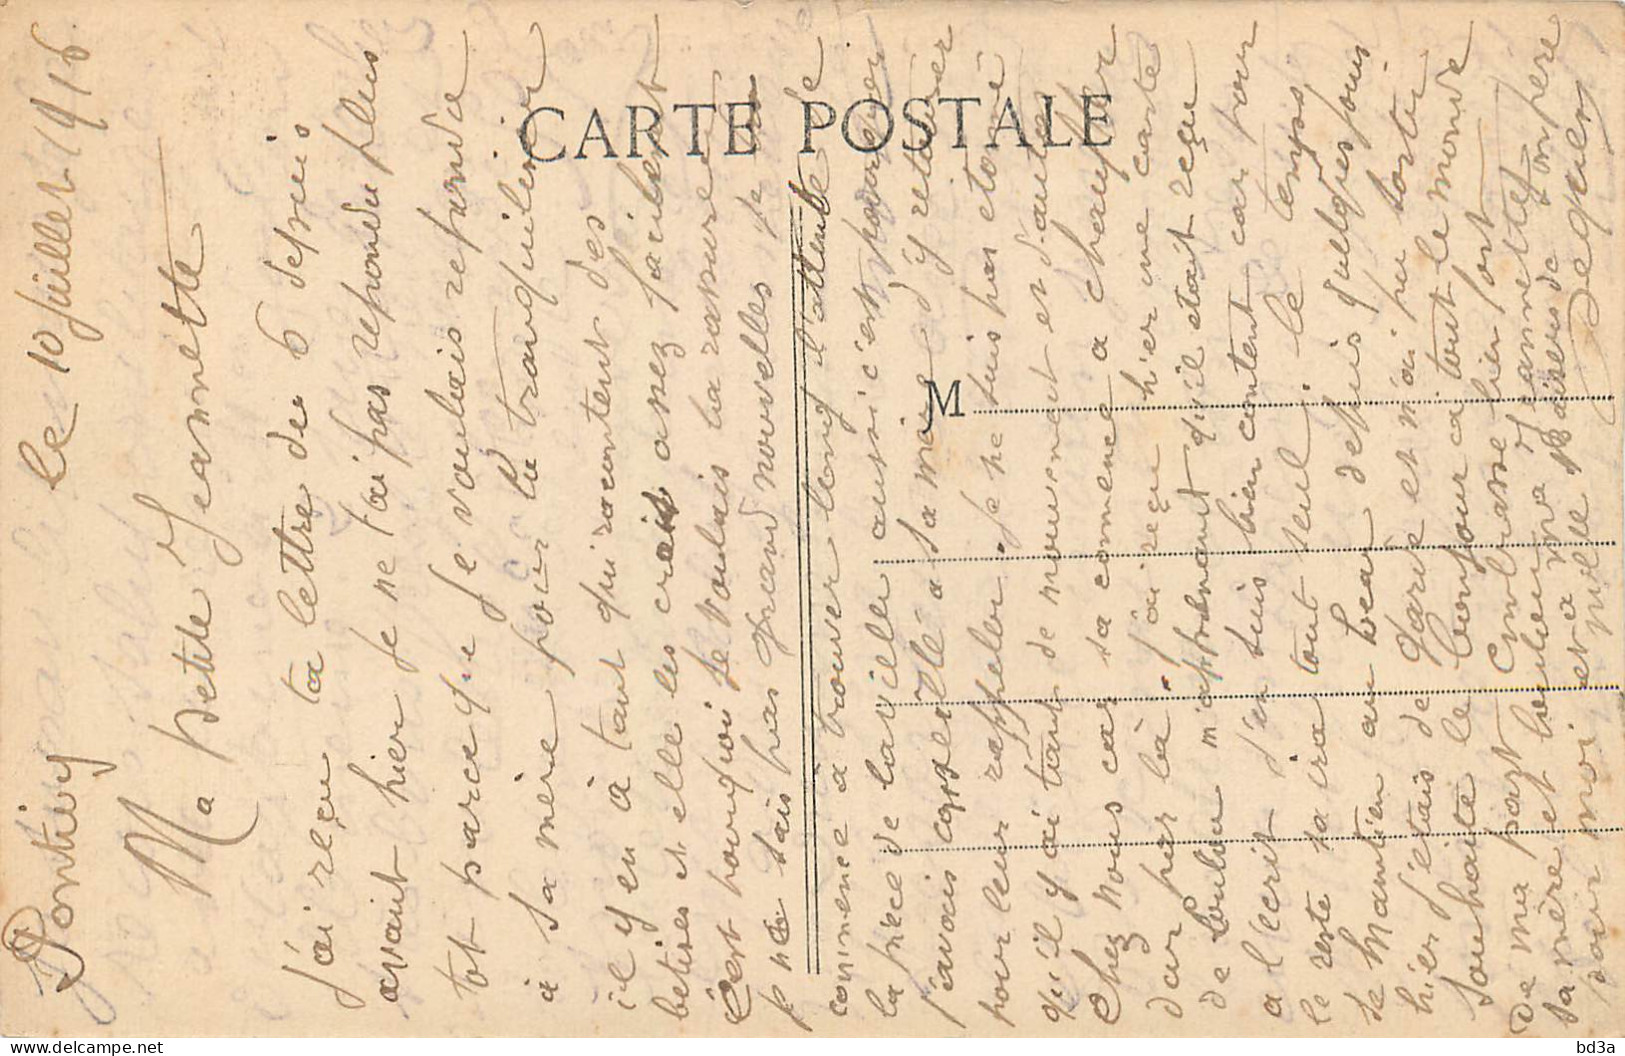 CARTE POSTALE
M
Pontivy le 10 juillet 1916
Ma petite Jeannette
J'ai reçu ta lettre du 6 depuis
avant hier je ne t'ai pas repondu plus
tot parce que je voulais repondre
à ta mère pour la tranquiliser
il y en à tant qui racontent des
betises et elle les croit assez facilement
C'est pourquoi je voulais la rassurer
je ne sais pas grand nouvelles je
commence à trouver long l'attente de
la pièce de la ville aussi c'est pourquoi
j'avais conseillé a ta mère d'y retourner
pour leur rappeler. Je ne suis pas etonné
qu'il y ai tant de mouvement et d'autel
Chez nous car sa comence a chauffer
dar par là. j'ai reçu hier une carte
de Loulou m'apprenant qu'il etait reçu
a l'écrit j'en suis bien content car pour
le reste sa ira tout seul. le temps
se maintien au beau depuis quelques jours
hier j'etais de garde et n'ai pu sortir
Souhaite le bonjour a tout le monde
De ma part Embrasse bien fort
ta mère et Loulou me Jeannette ton père
pour moi et a me baisers de
mille Jequier
bd3a